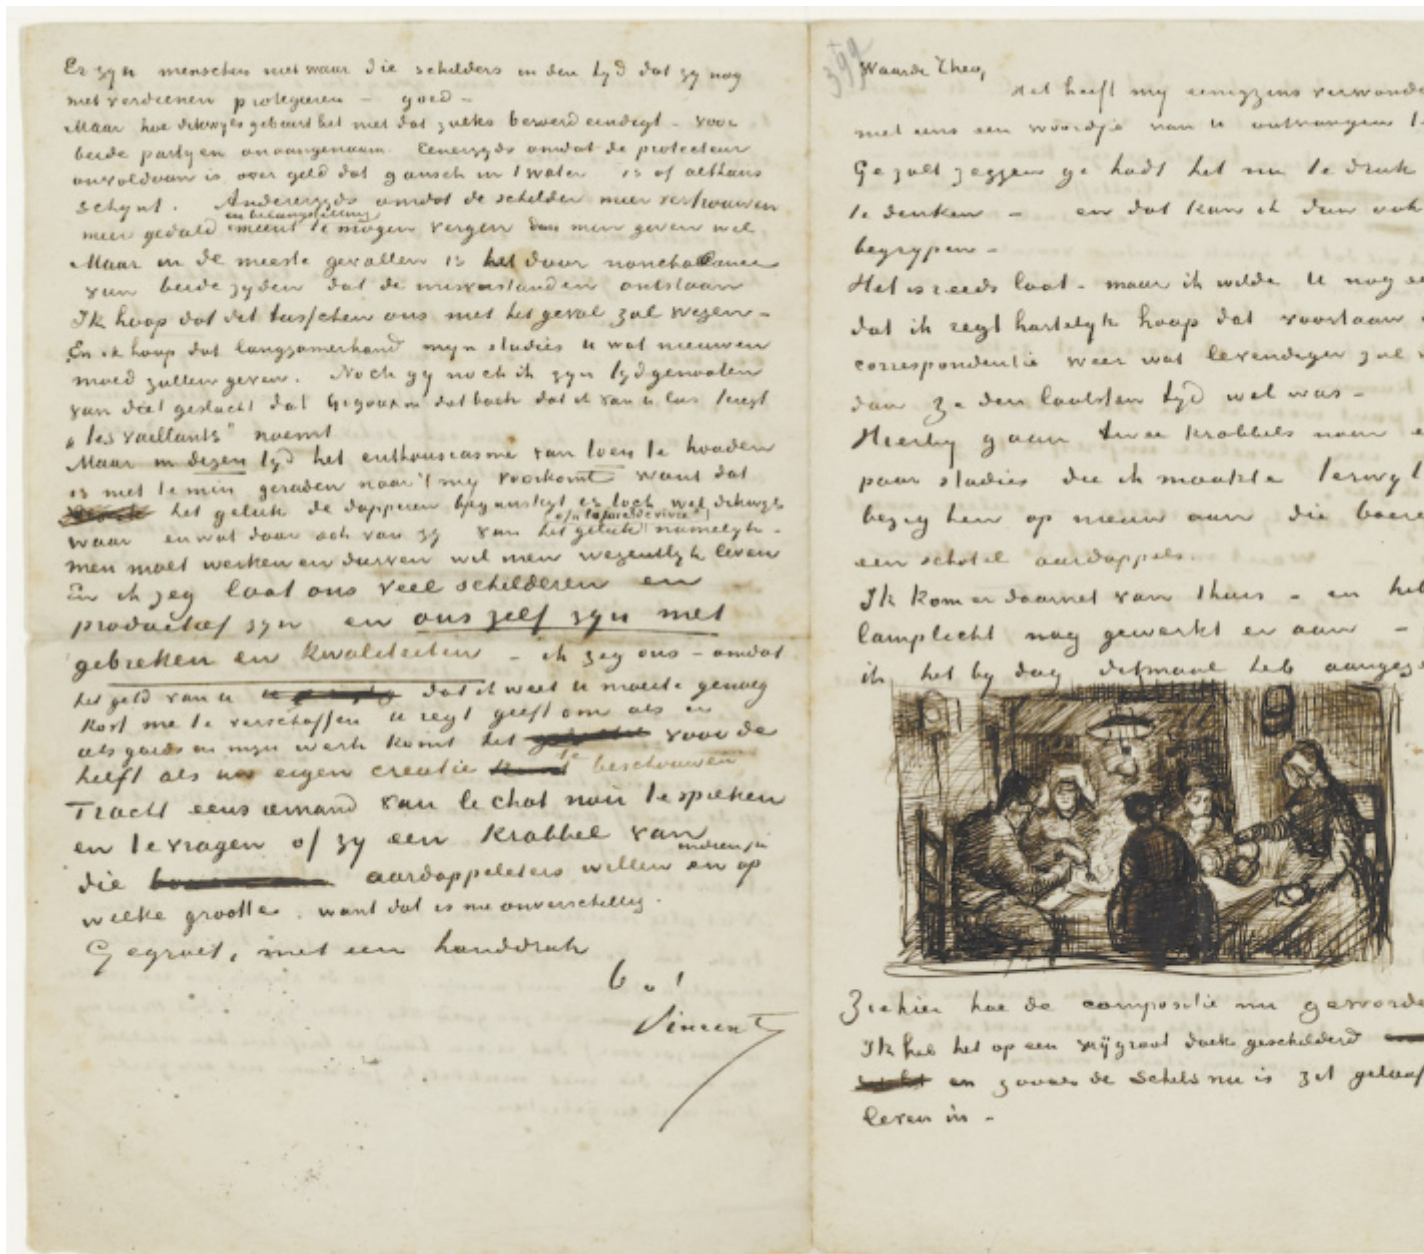 Er zyn menschen niet waar die schilders in den tyd dat zy nog
niet verdienen protegeeren – goed –
Maar hoe dikwyls gebeurt het niet dat zulks beroerd eindigt – voor
beide partyen onaangenaam. Eenerzyds omdat de protecteur
onvoldaan is over geld dat gansch in 't water is of althans
schynt. Anderzyds omdat de schilder meer vertrouwen
en belangstelling
meer geduld meent te mogen vergen dan men geven wil
Maar in de meeste gevallen is het door nonchalance
van beide zyden dat de misverstanden ontstaan
Ik hoop dat dit tusschen ons niet het geval zal wezen –
En ik hoop dat langzamerhand myn studies u wat nieuwen
moed zullen geven. Noch gy noch ik zyn tydgenooten
van dat geslacht dat Gigoux in dat boek dat ik van u las teregt
„les vaillants" noemt
Maar in dezen tyd het enthousiasme van toen te houden
is niet te min geraden naar 't my voorkomt want dat
het geluk de dapperen begunstigt is toch wel dikwyls
o/d la joie de vivre
waar en wat daar ook van zy van het geluk namelyk –
men moet werken en durven wil men wezentlyk leven
En ik zeg laat ons veel schilderen en
productief zyn en ons zelf zyn met
gebreken en kwaliteiten – ik zeg ons – omdat
het geld van u dat ik weet u moeite genoeg
kost me te verschaffen u regt geeft om als er
iets goeds in myn werk komt het voor de
helft als uw eigen creatie te beschouwen
Tracht eens iemand van le chat noir te spreken
en te vragen of zy een krabbel van
indien ja
die aardappeleters willen en op
welke grootte. want dat is me onverschillig.
Gegroet, met een handdruk
t. à t.
Vincent
399
Waarde Theo,
Het heeft my eenigzins verwonder
niet eens een woordje van u ontvangen t
Ge zult zeggen ge hadt het nu te druk
te denken – en dat kan ik dan ook
begrypen –
Het is reeds laat – maar ik wilde u nog ee
dat ik regt hartelyk hoop dat voortaan
correspondentie weer wat levendiger zal
dan ze den laatsten tyd wel was –
Hierby gaan twee krabbels naar e
paar studies die ik maakte terwyl
bezig ben op nieuw aan die boere
een schotel aardappels.
Ik kom er daarnet van thuis – en heb
lamplicht nog gewerkt er aan –
ik het by dag ditmaal heb aangeze
Ziehier hoe de compositie nu geworde
Ik heb het op een vrij groot doek geschilderd
en zooals de schets nu is zit geloof
leven in –